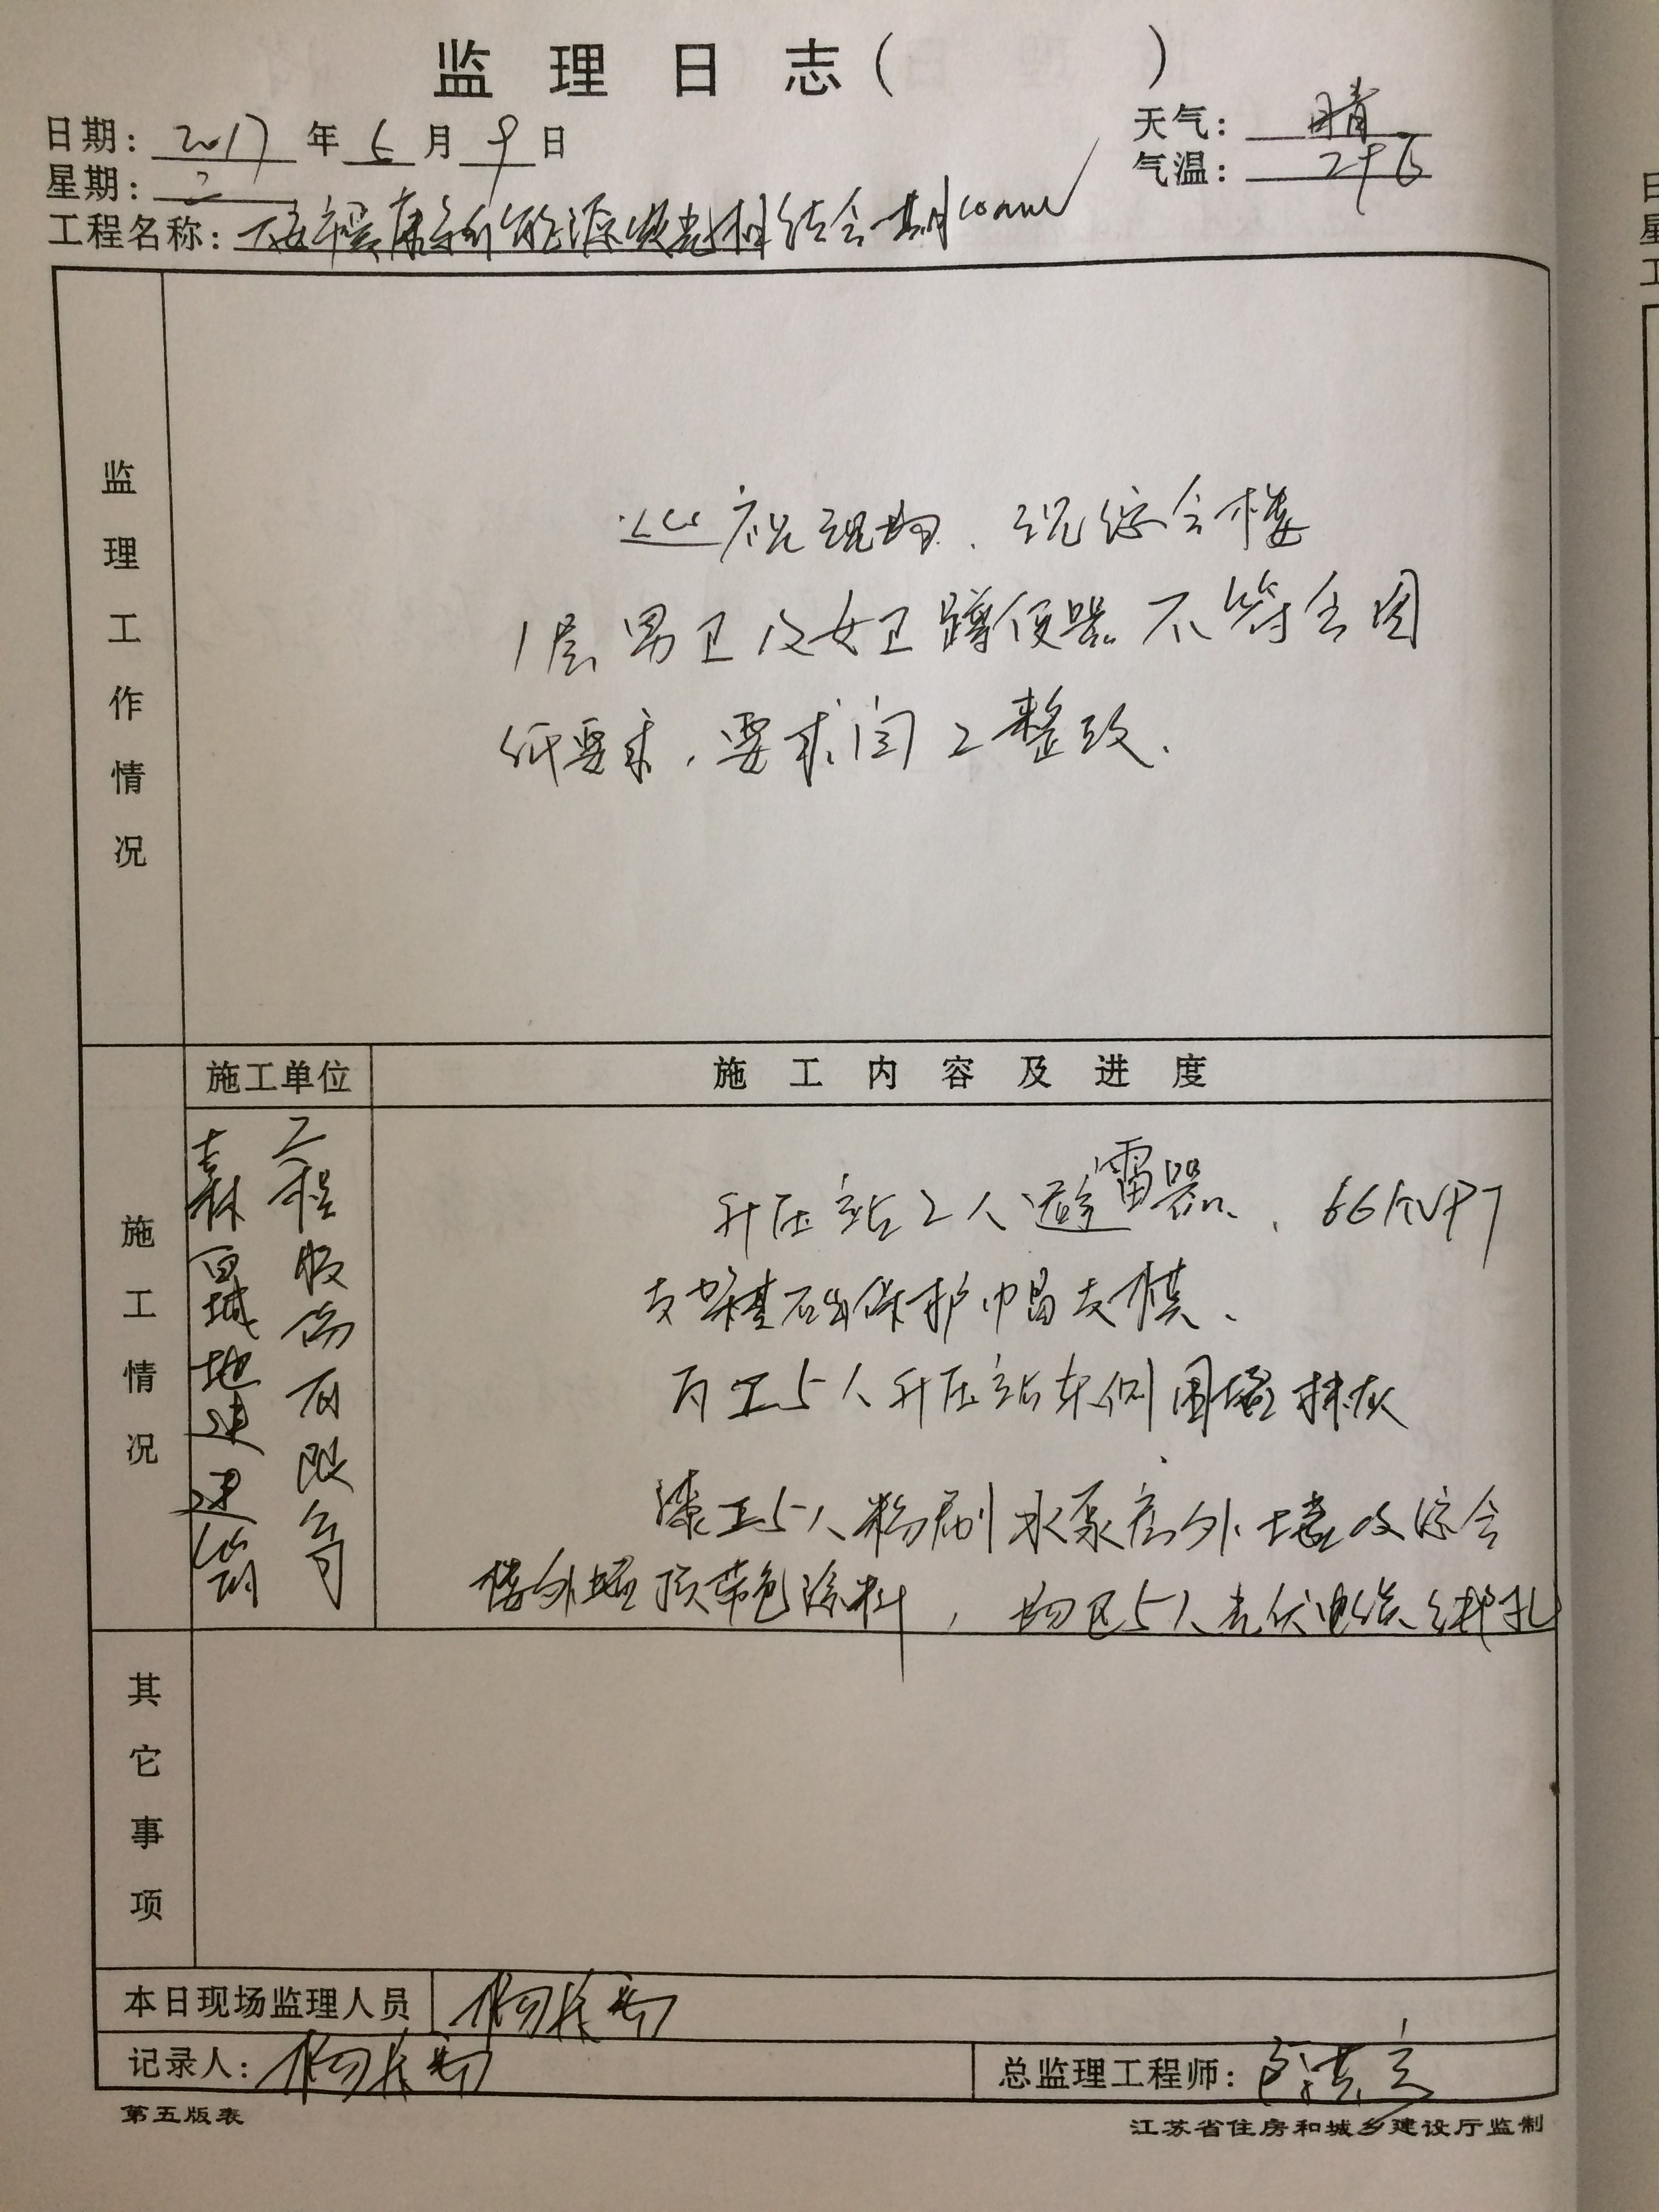 监理日志（ ）
日期：2017年5月9日
天气：晴
星期：二
气温：
工程名称：新能源结合一期
监理工作情况
巡视现场、现综合楼
1层男卫及女卫蹲便器不符合图
纸要求，要求闫工整改.
施工单位
施工内容及进度
施工情况
工程股份有限公司
升压站2人避雷器、66KVPT
支架基础保护帽支模、
瓦工5人升压站东侧围墙抹灰
漆工5人粉刷水泵房外墙及综合
楼外墙顶带色涂料，场区5人光伏电缆绑扎
其它事项
本日现场监理人员
记录人：
总监理工程师：
第五版表
江苏省住房和城乡建设厅监制
日
星
工